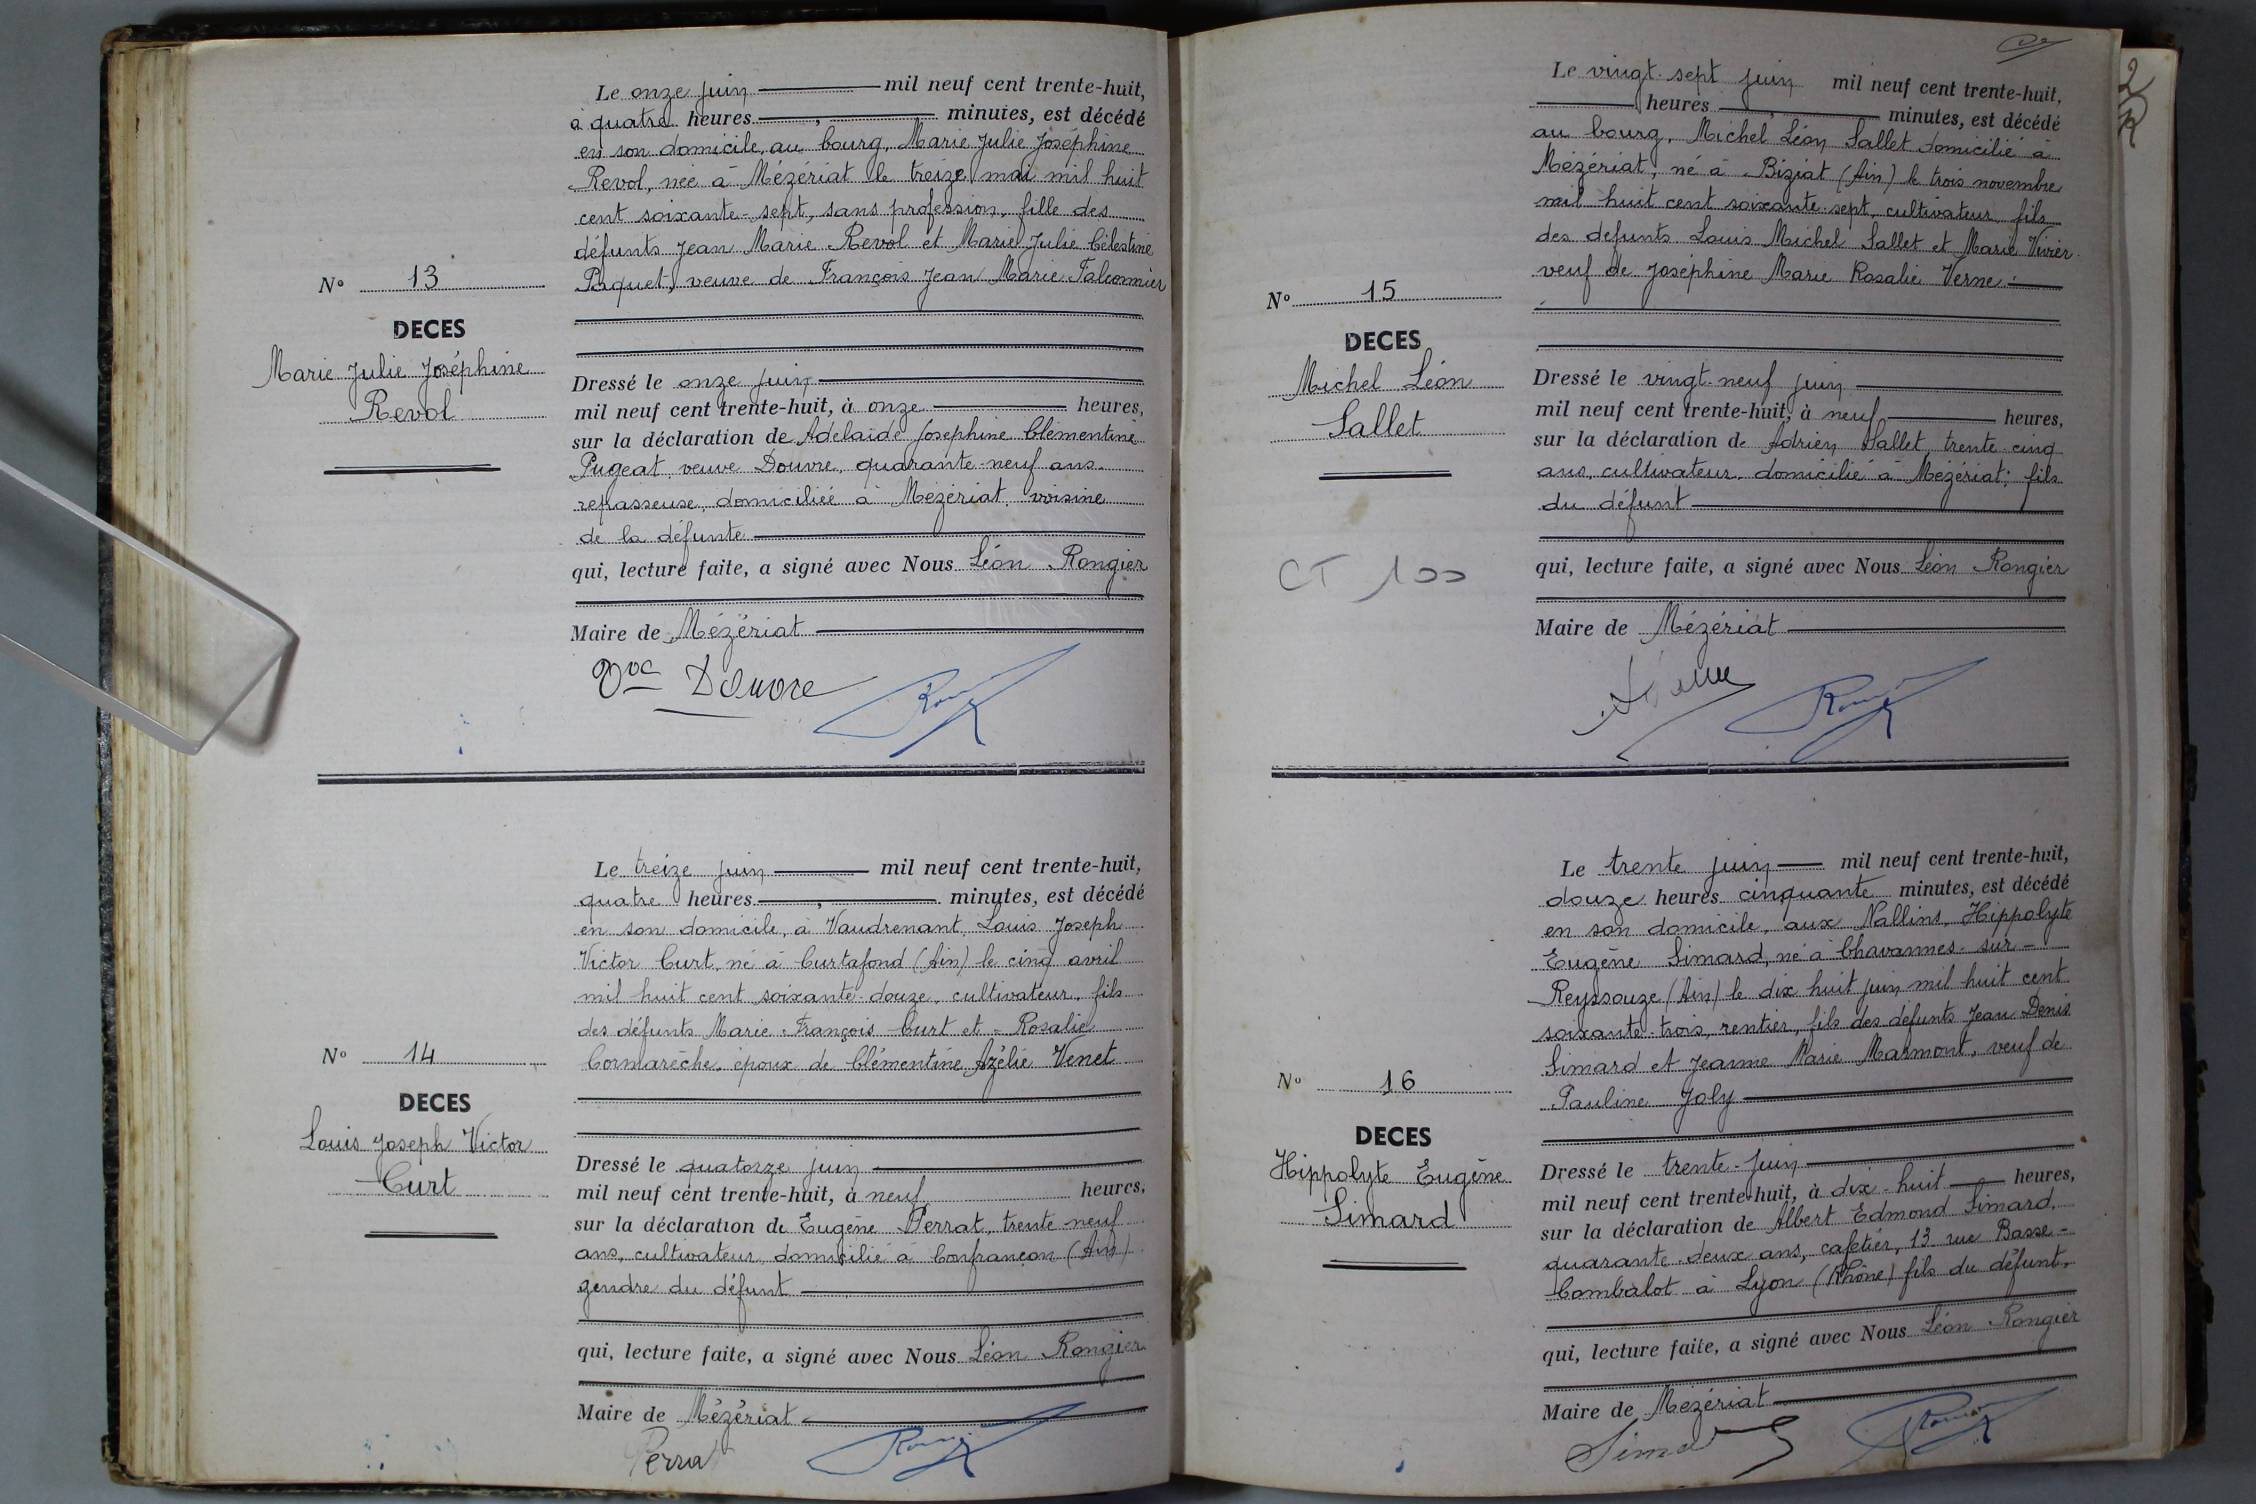 Le onze juin mil neuf cent trente-huit,
à quatre heures, minutes, est décédé
en son domicile, au bourg, Marie Julie Joséphine
Revol, née à Mézériat le treize mai mil huit
cent soixante-sept, sans profession, fille des
défunts Jean Marie Revol et Marie Julie Célestine
Paquet, veuve de François Jean Marie Falconnier
N° 13
DECES
Marie Julie Joséphine
Revol
Dressé le onze juin
mil neuf cent trente-huit, à onze heures,
sur la déclaration de Adelaïde Josephine Clémentine
Pugeat veuve Douvre, quarante-neuf ans.
repasseuse, domiciliée à Mézériat voisine
de la défunte
qui, lecture faite, a signé avec Nous Léon Rongier
Maire de Mézériat
Vve Douvre
Le treize juin mil neuf cent trente-huit,
quatre heures, minutes, est décédé
en son domicile, à Vaudrenant, Louis Joseph
Victor Curt, né à Curtafond (Ain) le cinq avril
mil huit cent soixante-douze, cultivateur, fils
des défunts Marie-François Curt et Rosalie
Cormarèche, époux de Clémentine Azélie Venet
N° 14
DECES
Louis Joseph Victor
Curt
Dressé le quatorze juin
mil neuf cent trente-huit, à neuf heures,
sur la déclaration de Eugène Perrat, trente neuf
ans, cultivateur, domicilié à Confrançon (Ain)
gendre du défunt
qui, lecture faite, a signé avec Nous Léon Rongier
Maire de Mézériat
Perrat
Le vingt-sept juin mil neuf cent trente-huit,
heures, minutes, est décédé
au bourg, Michel Léon Sallet domicilié à
Mézériat, né à Biziat (Ain) le trois novembre
mil huit cent soixante-sept, cultivateur, fils
des défunts Louis Michel Sallet et Marie Vivier
veuf de Joséphine Marie Rosalie Verne.
N° 15
DECES
Michel Léon
Sallet
CT 100
Dressé le vingt-neuf juin
mil neuf cent trente-huit, à neuf heures,
sur la déclaration de Adrien Sallet, trente-cinq
ans, cultivateur, domicilié à Mézériat; fils
du défunt
qui, lecture faite, a signé avec Nous Léon Rongier
Maire de Mézériat
Le trente juin mil neuf cent trente-huit,
douze heures cinquante minutes, est décédé
en son domicile, aux Nallins, Hippolyte
Eugène Simard, né à Chavannes-sur-
Reyssouze (Ain) le dix huit juin mil huit cent
soixante-trois, rentier, fils des défunts Jean Denis
Simard et Jeanne Marie Marmont, veuf de
Pauline Joly
N° 16
DECES
Hippolyte Eugène
Simard
Dressé le trente-juin
mil neuf cent trente-huit, à dix-huit heures,
sur la déclaration de Albert Edmond Simard,
quarante-deux ans, cafetier, 13 rue Basse-
Combalot à Lyon (Rhône) fils du défunt,
qui, lecture faite, a signé avec Nous Léon Rongier
Maire de Mézériat
Simard